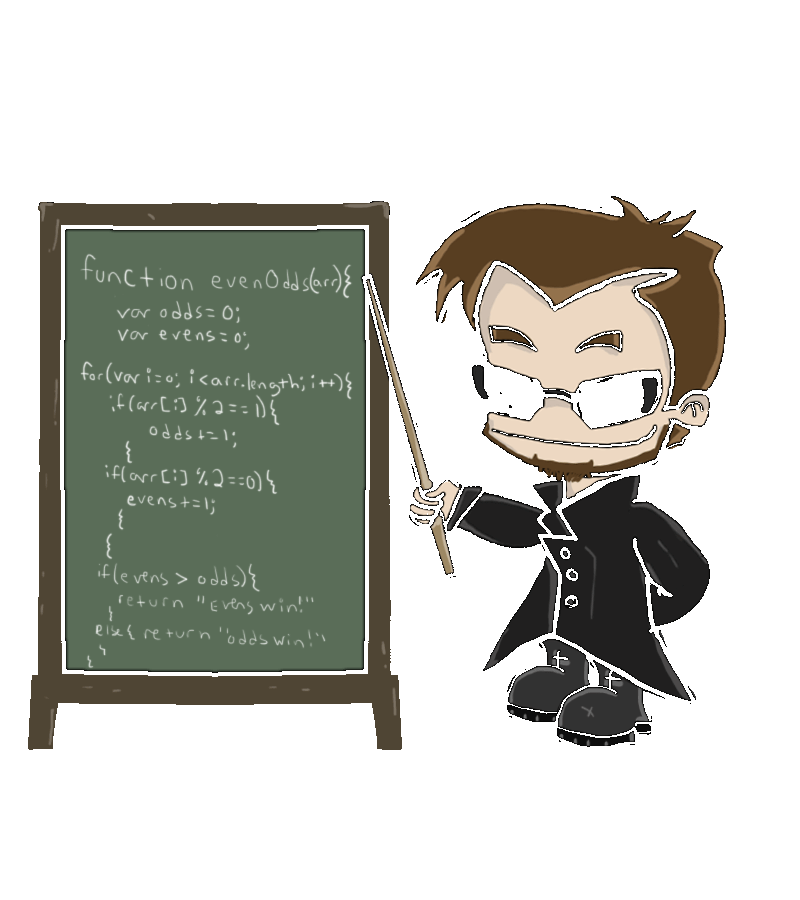 function evenOdds(arr){
var odds = 0;
var evens = 0;
for(var i=0; i<arr.length; i++){
if(arr[i] % 2 == 1){
odds += 1;
}
if(arr[i] % 2 == 0){
evens += 1;
}
}
if(evens > odds){
return "Evens win!"
}
else{ return "odds win!"
}
}